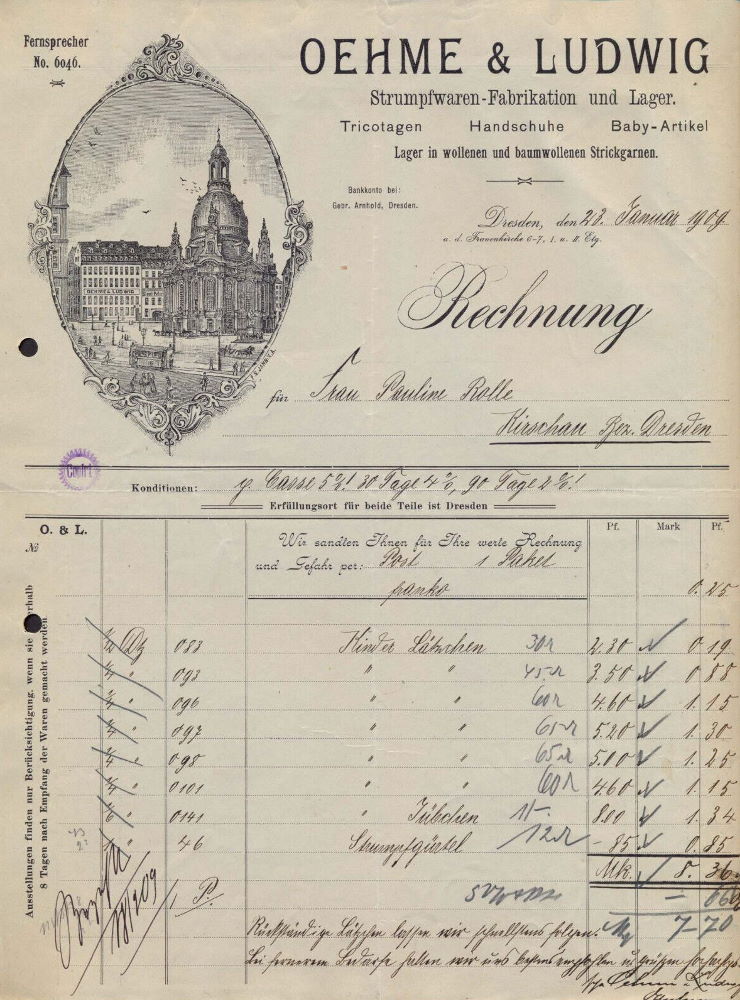 Fernsprecher
No. 6046.
OEHME & LUDWIG
Strumpfwaren-Fabrikation und Lager.
Tricotagen Handschuhe Baby-Artikel
Lager in wollenen und baumwollenen Strickgarnen.
Bankkonto bei:
Gebr. Arnhold, Dresden.
OEHME & LUDWIG
Dresden, den 23. Januar 1909
a. d. Frauenkirche 6-7, 1. u. II. Etg.
Rechnung
für Frau Pauline Rolle
Kirschau Bez. Dresden
Konditionen: p. Casse 5%! 30 Tage 4%, 90 Tage 2%!
Erfüllungsort für beide Teile ist Dresden
O. & L.
№
Pf. Mark Pf.
Wir sandten Ihnen für Ihre werte Rechnung
und Gefahr per: Post 1 Paket
franko 0.25
Ausstellungen finden nur Berücksichtigung, wenn sie innerhalb
8 Tagen nach Empfang der Waren gemacht werden
1/12 Dtz 083 Kinder Lätzchen 30 2.30 0 19
1/4 " 093 " " 45 3.50 0 88
1/4 " 096 " " 60 4.60 1.15
1/4 " 097 " " 65 5.20 1.30
1/4 " 098 " " 65 5.00 1.25
1/4 " 0101 " " 60 4.60 1.15
1/6 " 0141 " Jübchen 1- 8.00 1.34
1 " 46 Strumpfgürtel 12 -85 0.85
Mk. 8.36
1 P. 66
Rückständige Lätzchen lassen wir schnellstens folgen. 7-70
Bei fernerem Bedarfe halten wir uns bestens empfohlen u. grüssen